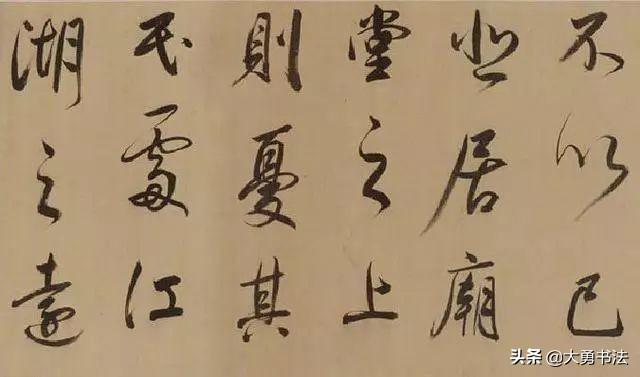 不以己
悲居廟
堂之上
則憂其
民處江
湖之遠
头条 @大勇书法